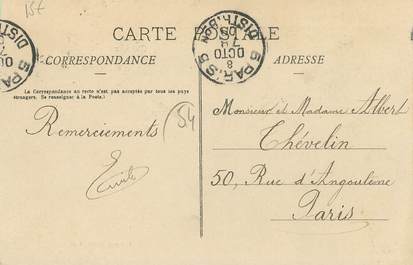 15€
CARTE POSTALE
CORRESPONDANCE
ADRESSE
La Correspondance au recto n'est pas acceptée par tous les pays
étrangers. (Se renseigner à la Poste.)
5 PARIS 5
DISTRIBON
8
OCTO
5 PA
DISTR
OC
Remerciements
54
Monsieur et Madame Albert
Thévelin
50, Rue d'Angoulême
Paris